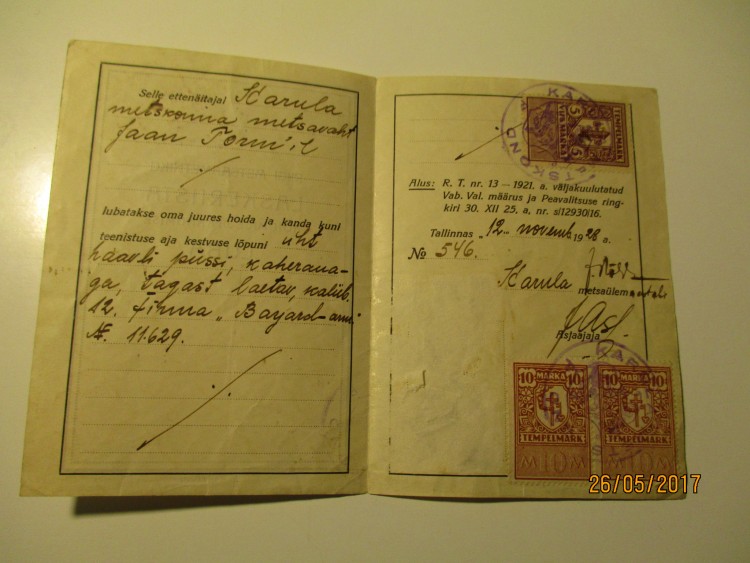 Selle ettenäitajal Karula
metskonna metsavaht
Jaan Torm'il
lubatakse oma juures hoida ja kanda kuni
teenistuse aja kestvuse lõpuni üht
haavli püssi, kaheraua-
ga, tagast laetav, kaliib.
12. firma „Bayard-
№ 11.629.
5 MARKA 5
TEMPELMARK
Alus: R. T. nr. 13 — 1921. a. väljakuulutatud
Vab. Val. määrus ja Peavalitsuse ring-
kiri 30. XII 25, a, nr. sl12930|16.
Tallinnas „12" novemb. 1928 a.
№ 546.
Karula
metsaülem
Asjaajaja
10 MARKA 10
TEMPELMARK
M 10 M
10 MARKA 10
TEMPELMARK
M 10 M
26/05/2017